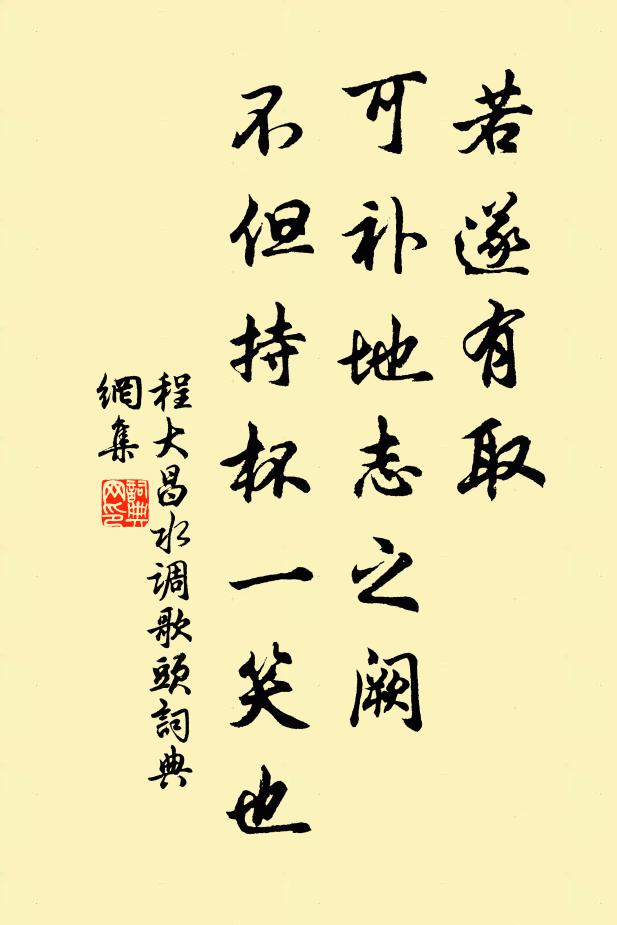 若遂有取
可补地志之阙
不但持杯一笑也
程大昌水调歌头詞典
網集
詞典網印